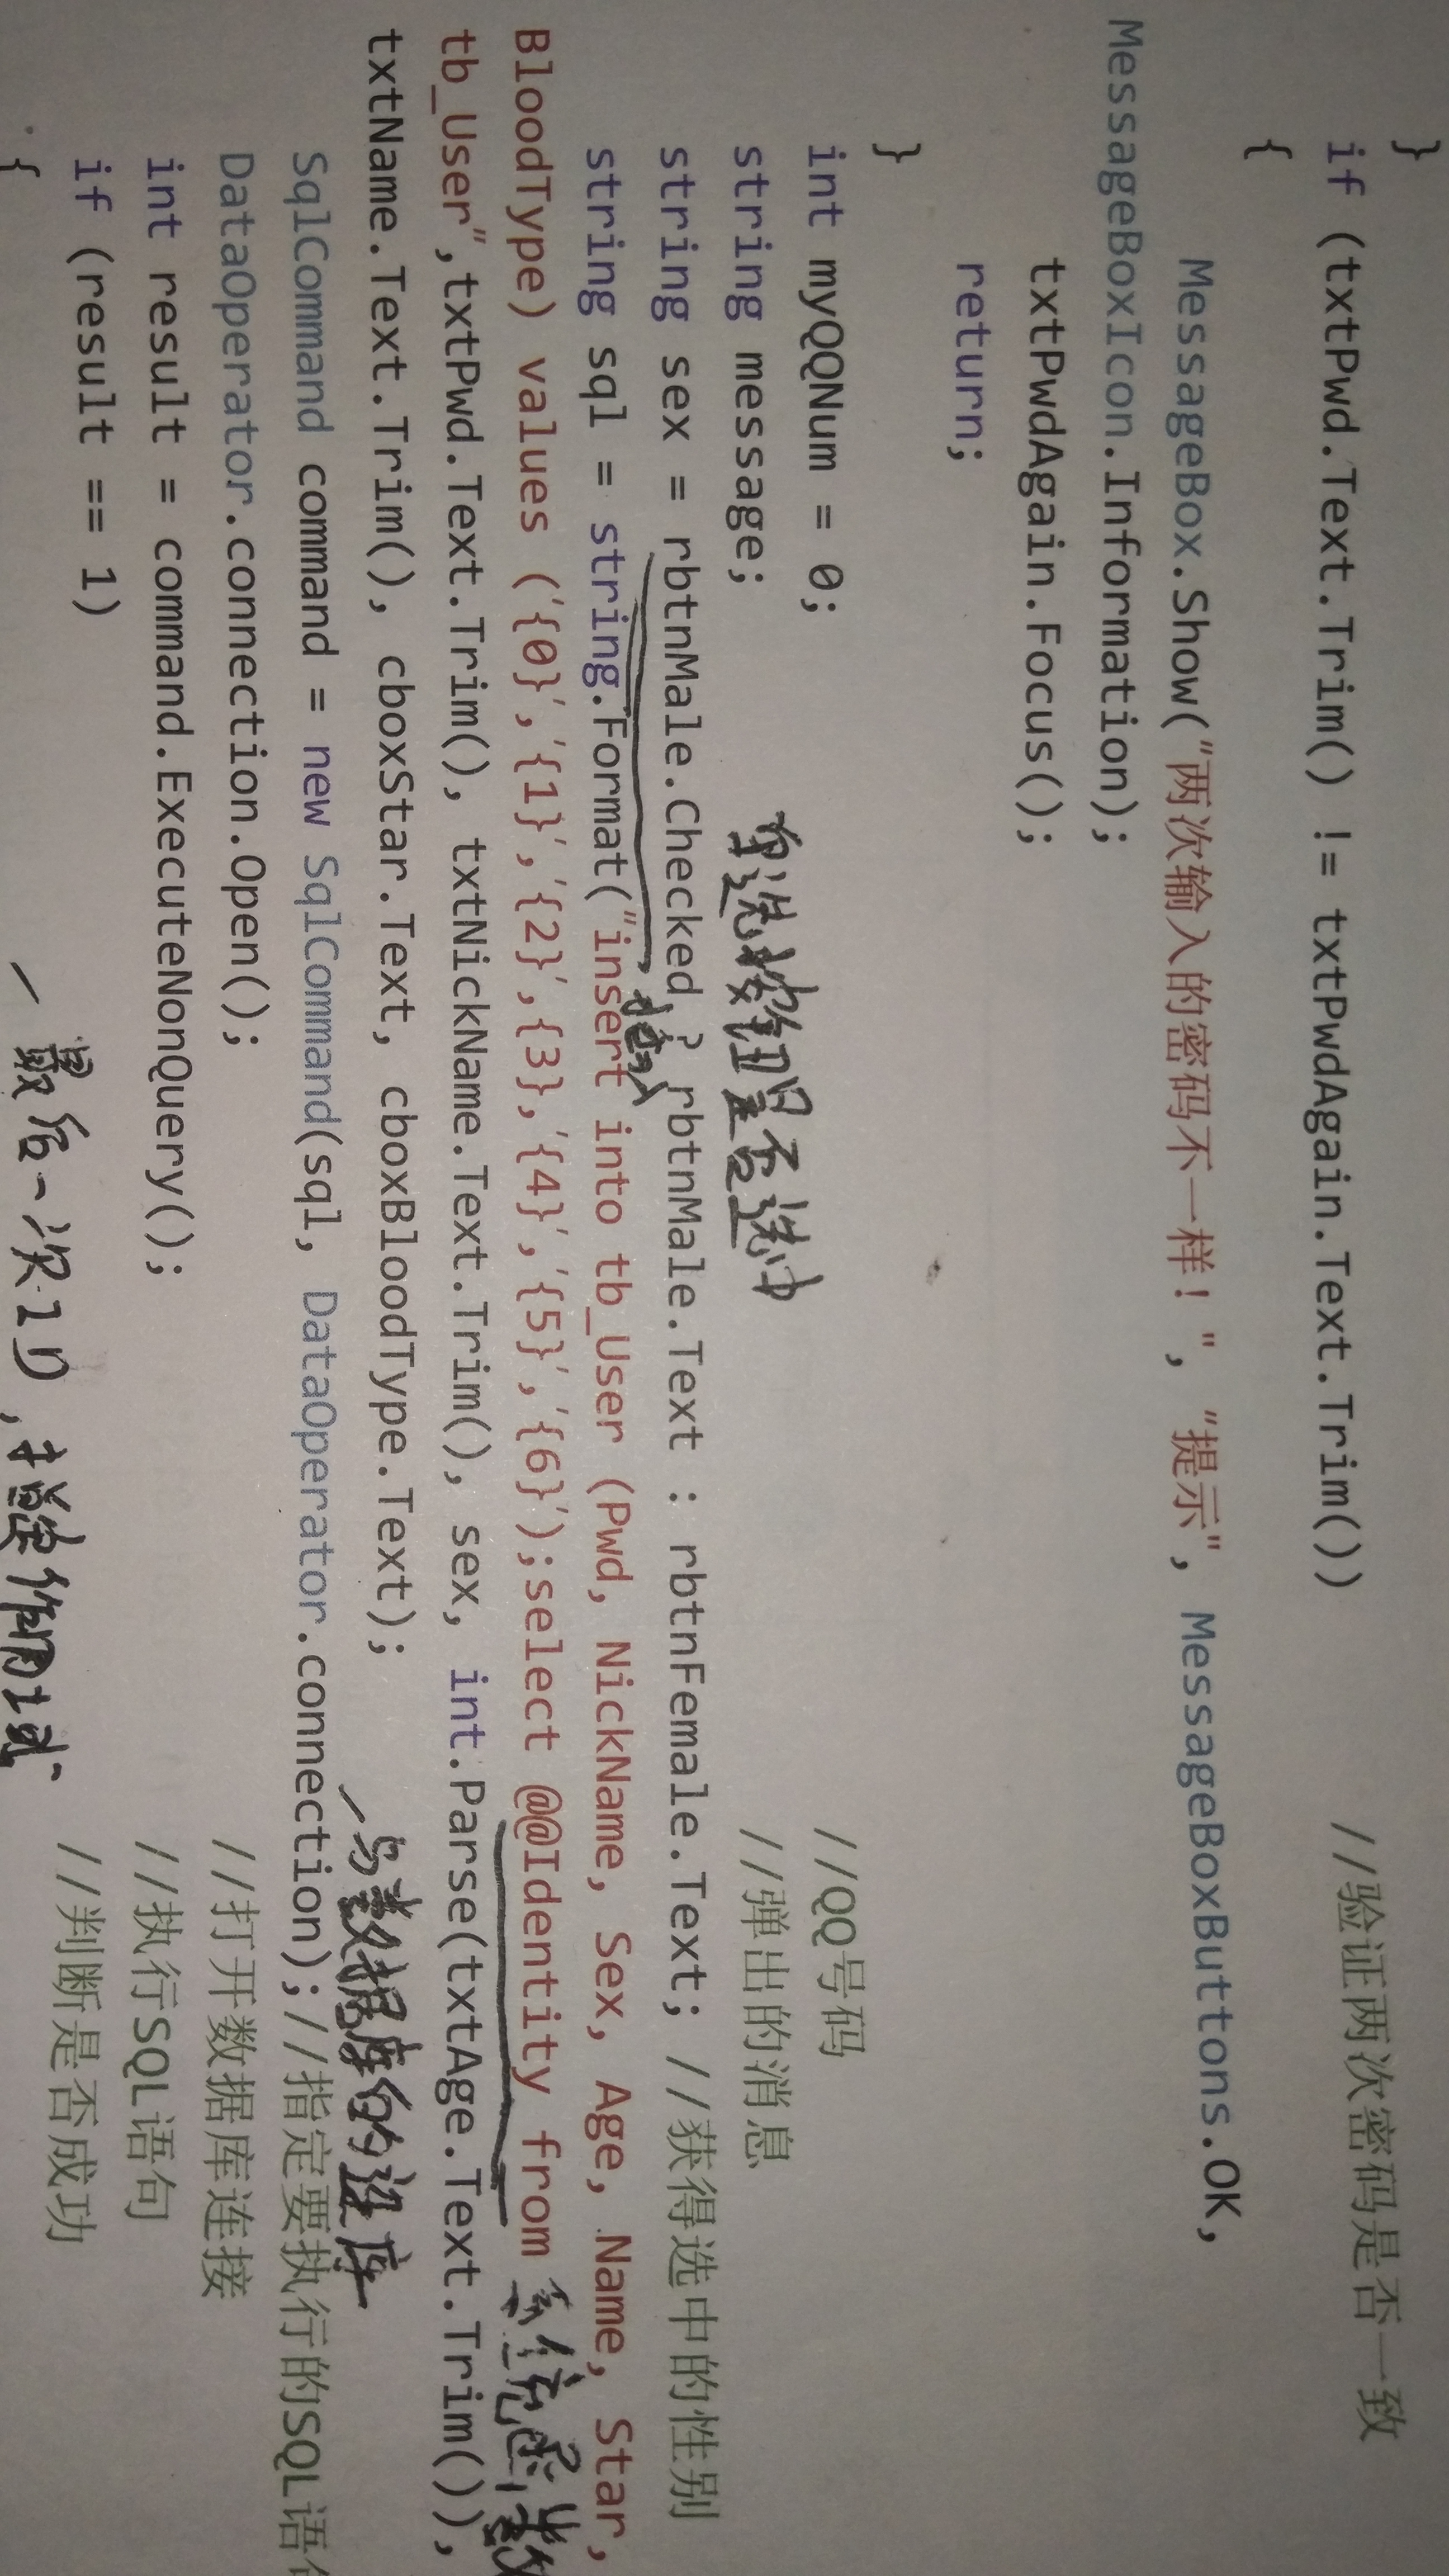 }
if (txtPwd.Text.Trim() != txtPwdAgain.Text.Trim()) //验证两次密码是否一致
{
MessageBox.Show("两次输入的密码不一样！", "提示", MessageBoxButtons.OK,
MessageBoxIcon.Information);
txtPwdAgain.Focus();
return;
}
int myQQNum = 0; //QQ号码
string message; //弹出的消息
单选按钮是否选中
string sex = rbtnMale.Checked ? rbtnMale.Text : rbtnFemale.Text; //获得选中的性别
插入
string sql = string.Format("insert into tb_User (Pwd, NickName, Sex, Age, Name, Star,
BloodType) values ('{0}','{1}','{2}',{3},'{4}','{5}','{6}');select @@Identity from 系统函数
tb_User",txtPwd.Text.Trim(), txtNickName.Text.Trim(), sex, int.Parse(txtAge.Text.Trim()),
txtName.Text.Trim(), cboxStar.Text, cboxBloodType.Text);
与数据库的连库
SqlCommand command = new SqlCommand(sql, DataOperator.connection);//指定要执行的SQL语
DataOperator.connection.Open(); //打开数据库连接
int result = command.ExecuteNonQuery(); //执行SQL语句
if (result == 1) //判断是否成功
{
最后一次